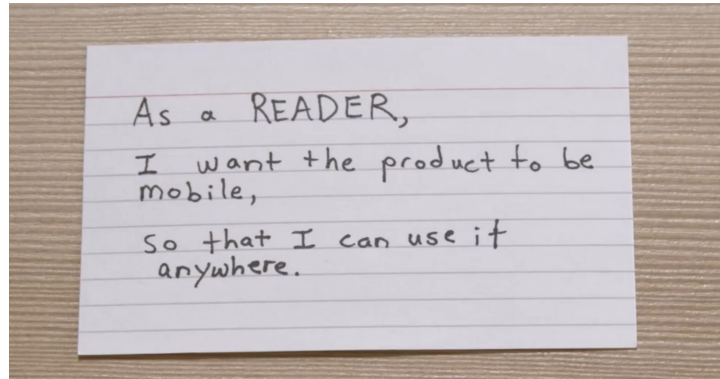 As a READER,
I want the product to be
mobile,
so that I can use it
anywhere.